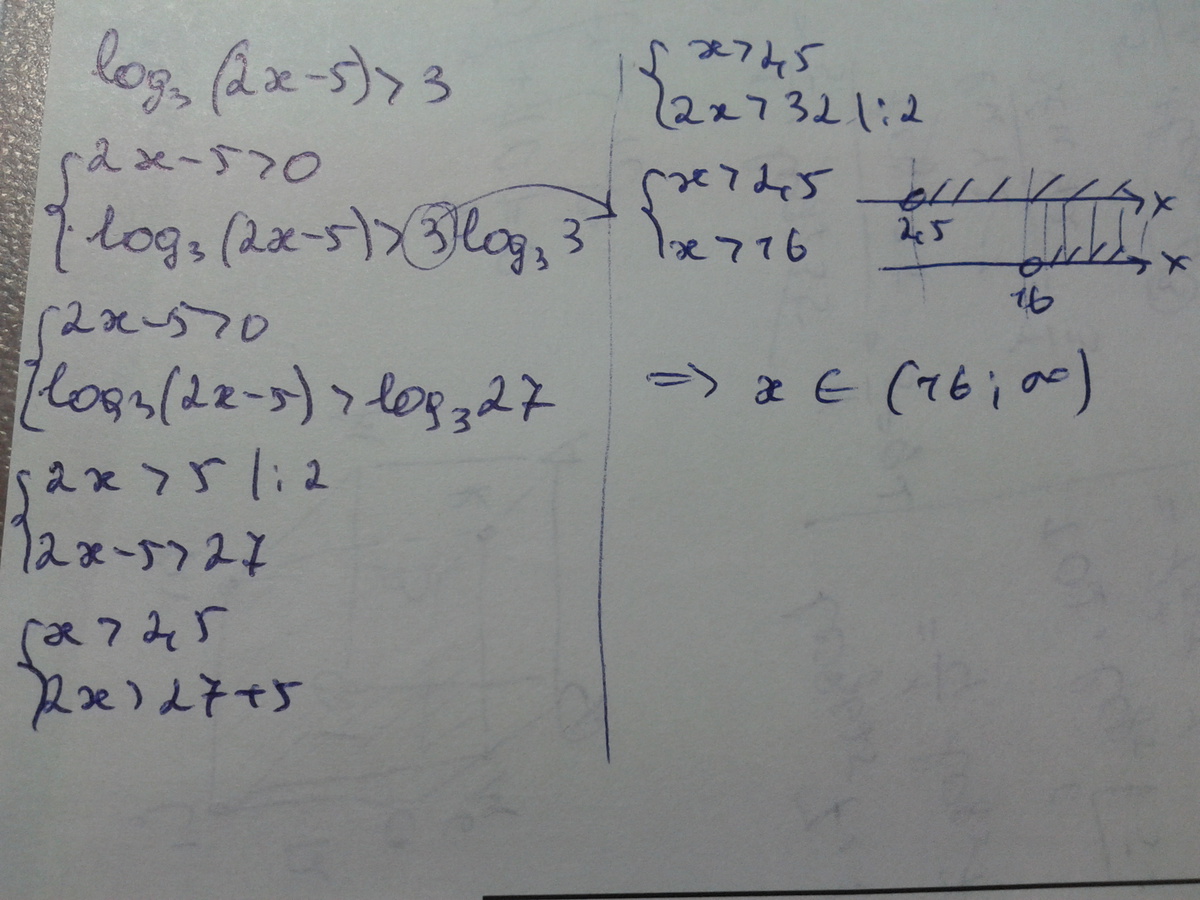 log₃(2x-5)>3
{2x-5>0
{log₃(2x-5)>3log₃3
{2x-5>0
{log₃(2x-5)>log₃27
{2x>5 |:2
{2x-5>27
{x>2,5
{2x>27+5
{x>2,5
{2x>32 |:2
{x>2,5
{x>16
x
2,5
x
16
=> x ∈ (16; ∞)